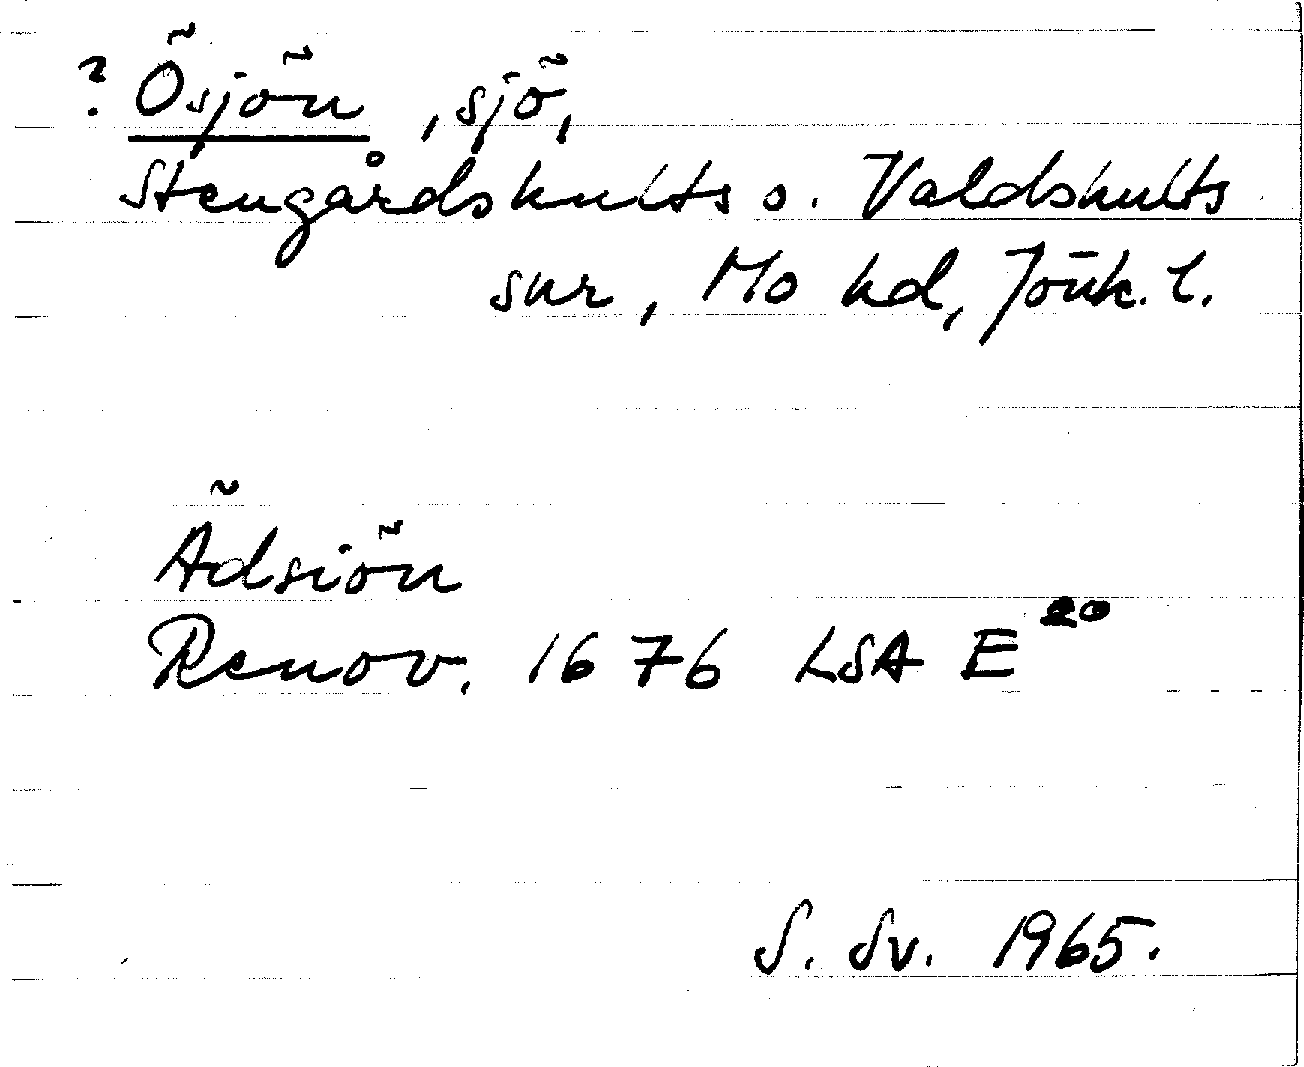 ? Ösjön, sjö,
Stengårdshults o. Valdshults
snr, Mo hd, Jönk. l.
Ädsiön
Renov. 1676 LSA E 20
S. Sv. 1965.